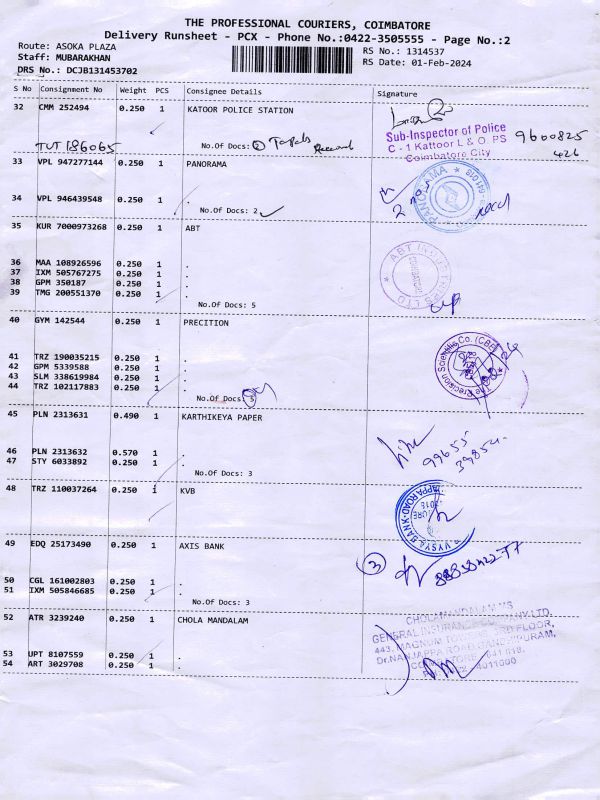 THE PROFESSIONAL COURIERS, COIMBATORE
Delivery Runsheet - PCX - Phone No.:0422-3505555 - Page No.:2
Route: ASOKA PLAZA
RS No.: 1314537
Staff: MUBARAKHAN
RS Date: 01-Feb-2024
DRS No.: DCJB131453702
S No Consignment No Weight PCS Consignee Details Signature
32 CMM 252494 0.250 1 KATOOR POLICE STATION
Sub-Inspector of Police
C - 1 Kattoor L & O. PS
Coimbatore City
9600825
426
TUT 186065 No.Of Docs: 2 Tapals Received
33 VPL 947277144 0.250 1 PANORAMA
34 VPL 946439548 0.250 1 .
No.Of Docs: 2
PANORAMA
2 nos recd
35 KUR 7000973268 0.250 1 ABT
36 MAA 108926596 0.250 1 .
37 IXM 505767275 0.250 1 .
38 GPM 350187 0.250 1 .
39 TMG 200551370 0.250 1 .
No.Of Docs: 5
ABT INDUSTRIES LTD
40 GYM 142544 0.250 1 PRECITION
41 TRZ 190035215 0.250 1 .
42 GPM 5339588 0.250 1 .
43 SLM 338619984 0.250 1 .
44 TRZ 102117883 0.250 1 .
No.Of Docs: 5
The Precision Scientific Co. (CBE)
45 PLN 2313631 0.490 1 KARTHIKEYA PAPER
46 PLN 2313632 0.570 1 .
47 STY 6033892 0.250 1 .
No.Of Docs: 3
99655
39854
48 TRZ 110037264 0.250 1 KVB
49 EDQ 25173490 0.250 1 AXIS BANK
50 CGL 161002803 0.250 1 .
51 IXM 505846685 0.250 1 .
No.Of Docs: 3
3
52 ATR 3239240 0.250 1 CHOLA MANDALAM
53 UPT 8107559 0.250 1 .
54 ART 3029708 0.250 1 .
CHOLAMANDALAM MS
GENERAL INSURANCE COMPANY LTD.
443, MAGNUM FLOOR,
Dr.NANJAPPA ROAD,
641 018.
4011000